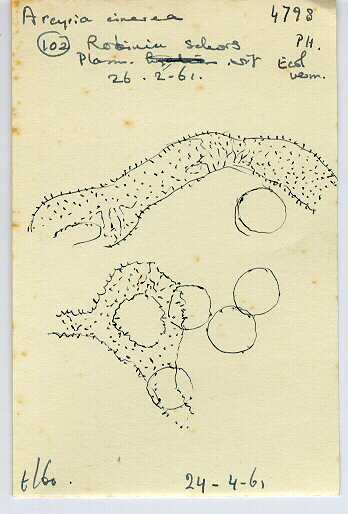 Arcyria cinerea 4798
102 Robinia schors PH.
Plasm. wit Ecol
26.2-61. vesm.
t/60. 24-4-61